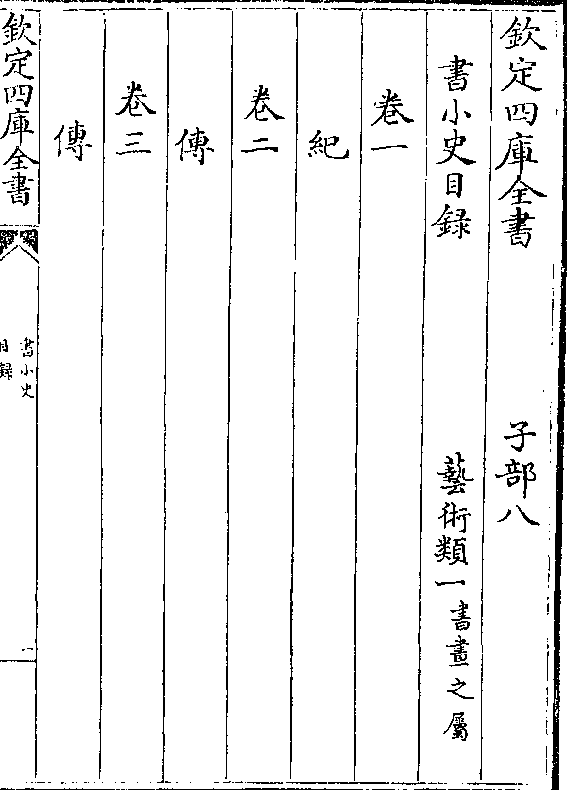 欽定四庫全書 子部八
書小史目録 藝術類一書畫之屬
卷一
紀
卷二
傳
卷三
傳
欽定四庫全書
書小史
目録
一